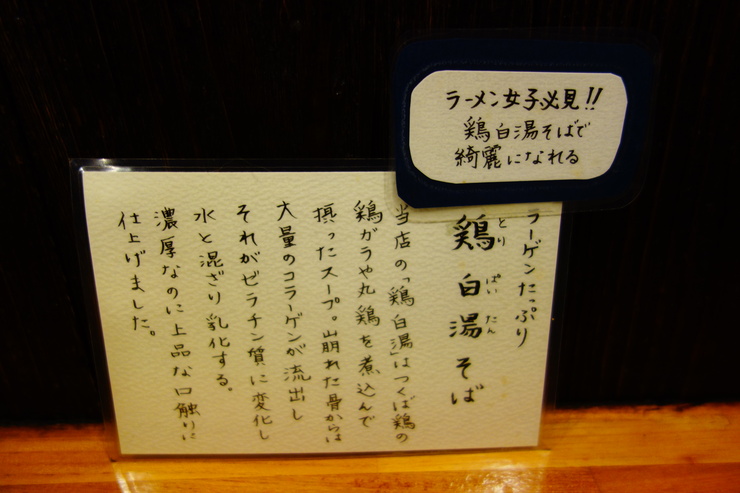 ラーメン女子必見!!
鶏白湯そばで
綺麗になれる
ラーゲンたっぷり
鶏白湯そば
とり ぱい たん
当店の「鶏白湯」はつくば鶏の
鶏ガラや丸鶏を煮込んで
摂ったスープ。崩れた骨からは
大量のコラーゲンが流出し
それがゼラチン質に変化し
水と混ざり乳化する。
濃厚なのに上品な口触りに
仕上げました。